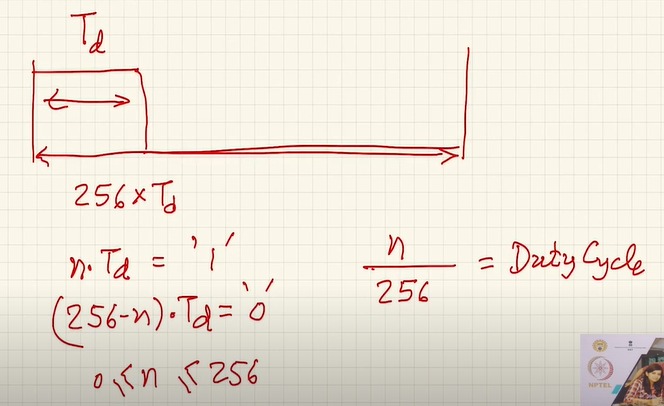 Td
256×Td
n·Td = '1'
(256-n)·Td = '0'
0 ≤ n ≤ 256
n/256 = Duty Cycle
NPTEL